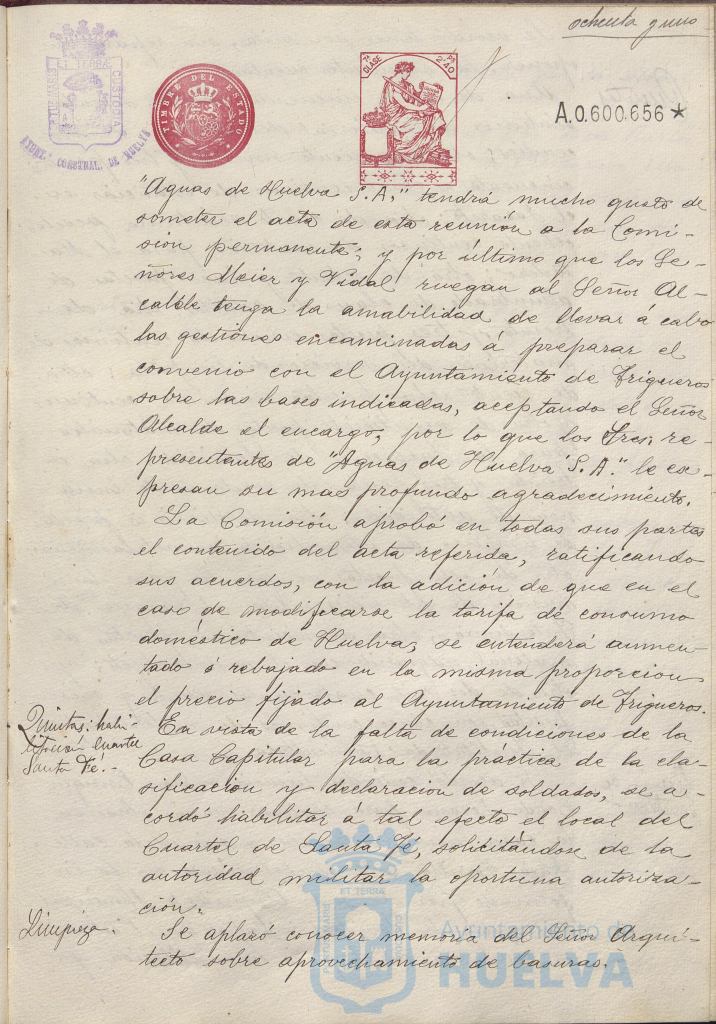 ochenta y uno
PORTUS MARIS
ET TERRÆ
CUSTODIA
AYUNT.º CONSTNAL. DE HUELVA
TIMBRE DEL ESTADO
7ª CLASE
PS 2'40
A.0.600.656 *
"Aguas de Huelva S.A," tendrá mucho gusto de
someter el acta de esta reunión a la Comi-
sión permanente; y por último que los Se-
ñores Meier y Vidal ruegan al Señor Al-
calde tenga la amabilidad de llevar á cabo
las gestiones encaminadas á preparar el
convenio con el Ayuntamiento de Trigueros
sobre las bases indicadas, aceptando el Señor
Alcalde el encargo, por lo que los tres re-
presentantes de "Aguas de Huelva S.A." le ex-
presan su mas profundo agradecimiento.
La Comisión aprobó en todas sus partes
el contenido del acta referida, ratificando
sus acuerdos, con la adición de que en el
caso de modificarse la tarifa de consumo
doméstico de Huelva, se entenderá aumen-
tado ó rebajado en la misma proporcion
el precio fijado al Ayuntamiento de Trigueros.
Quintas: habi-
litación Cuartel
Santa Fé.-
En vista de la falta de condiciones de la
Casa Capitular para la práctica de la cla-
sificación y declaración de soldados, se a-
cordó habilitar á tal efecto el local del
Cuartel de Santa Fé, solicitándose de la
autoridad militar la oportuna autoriza-
ción.
Limpieza:
Se aplazó conocer memoria del Señor Arqui-
tecto sobre aprovechamiento de basuras.
ET TERRA
Ayuntamiento de
HUELVA